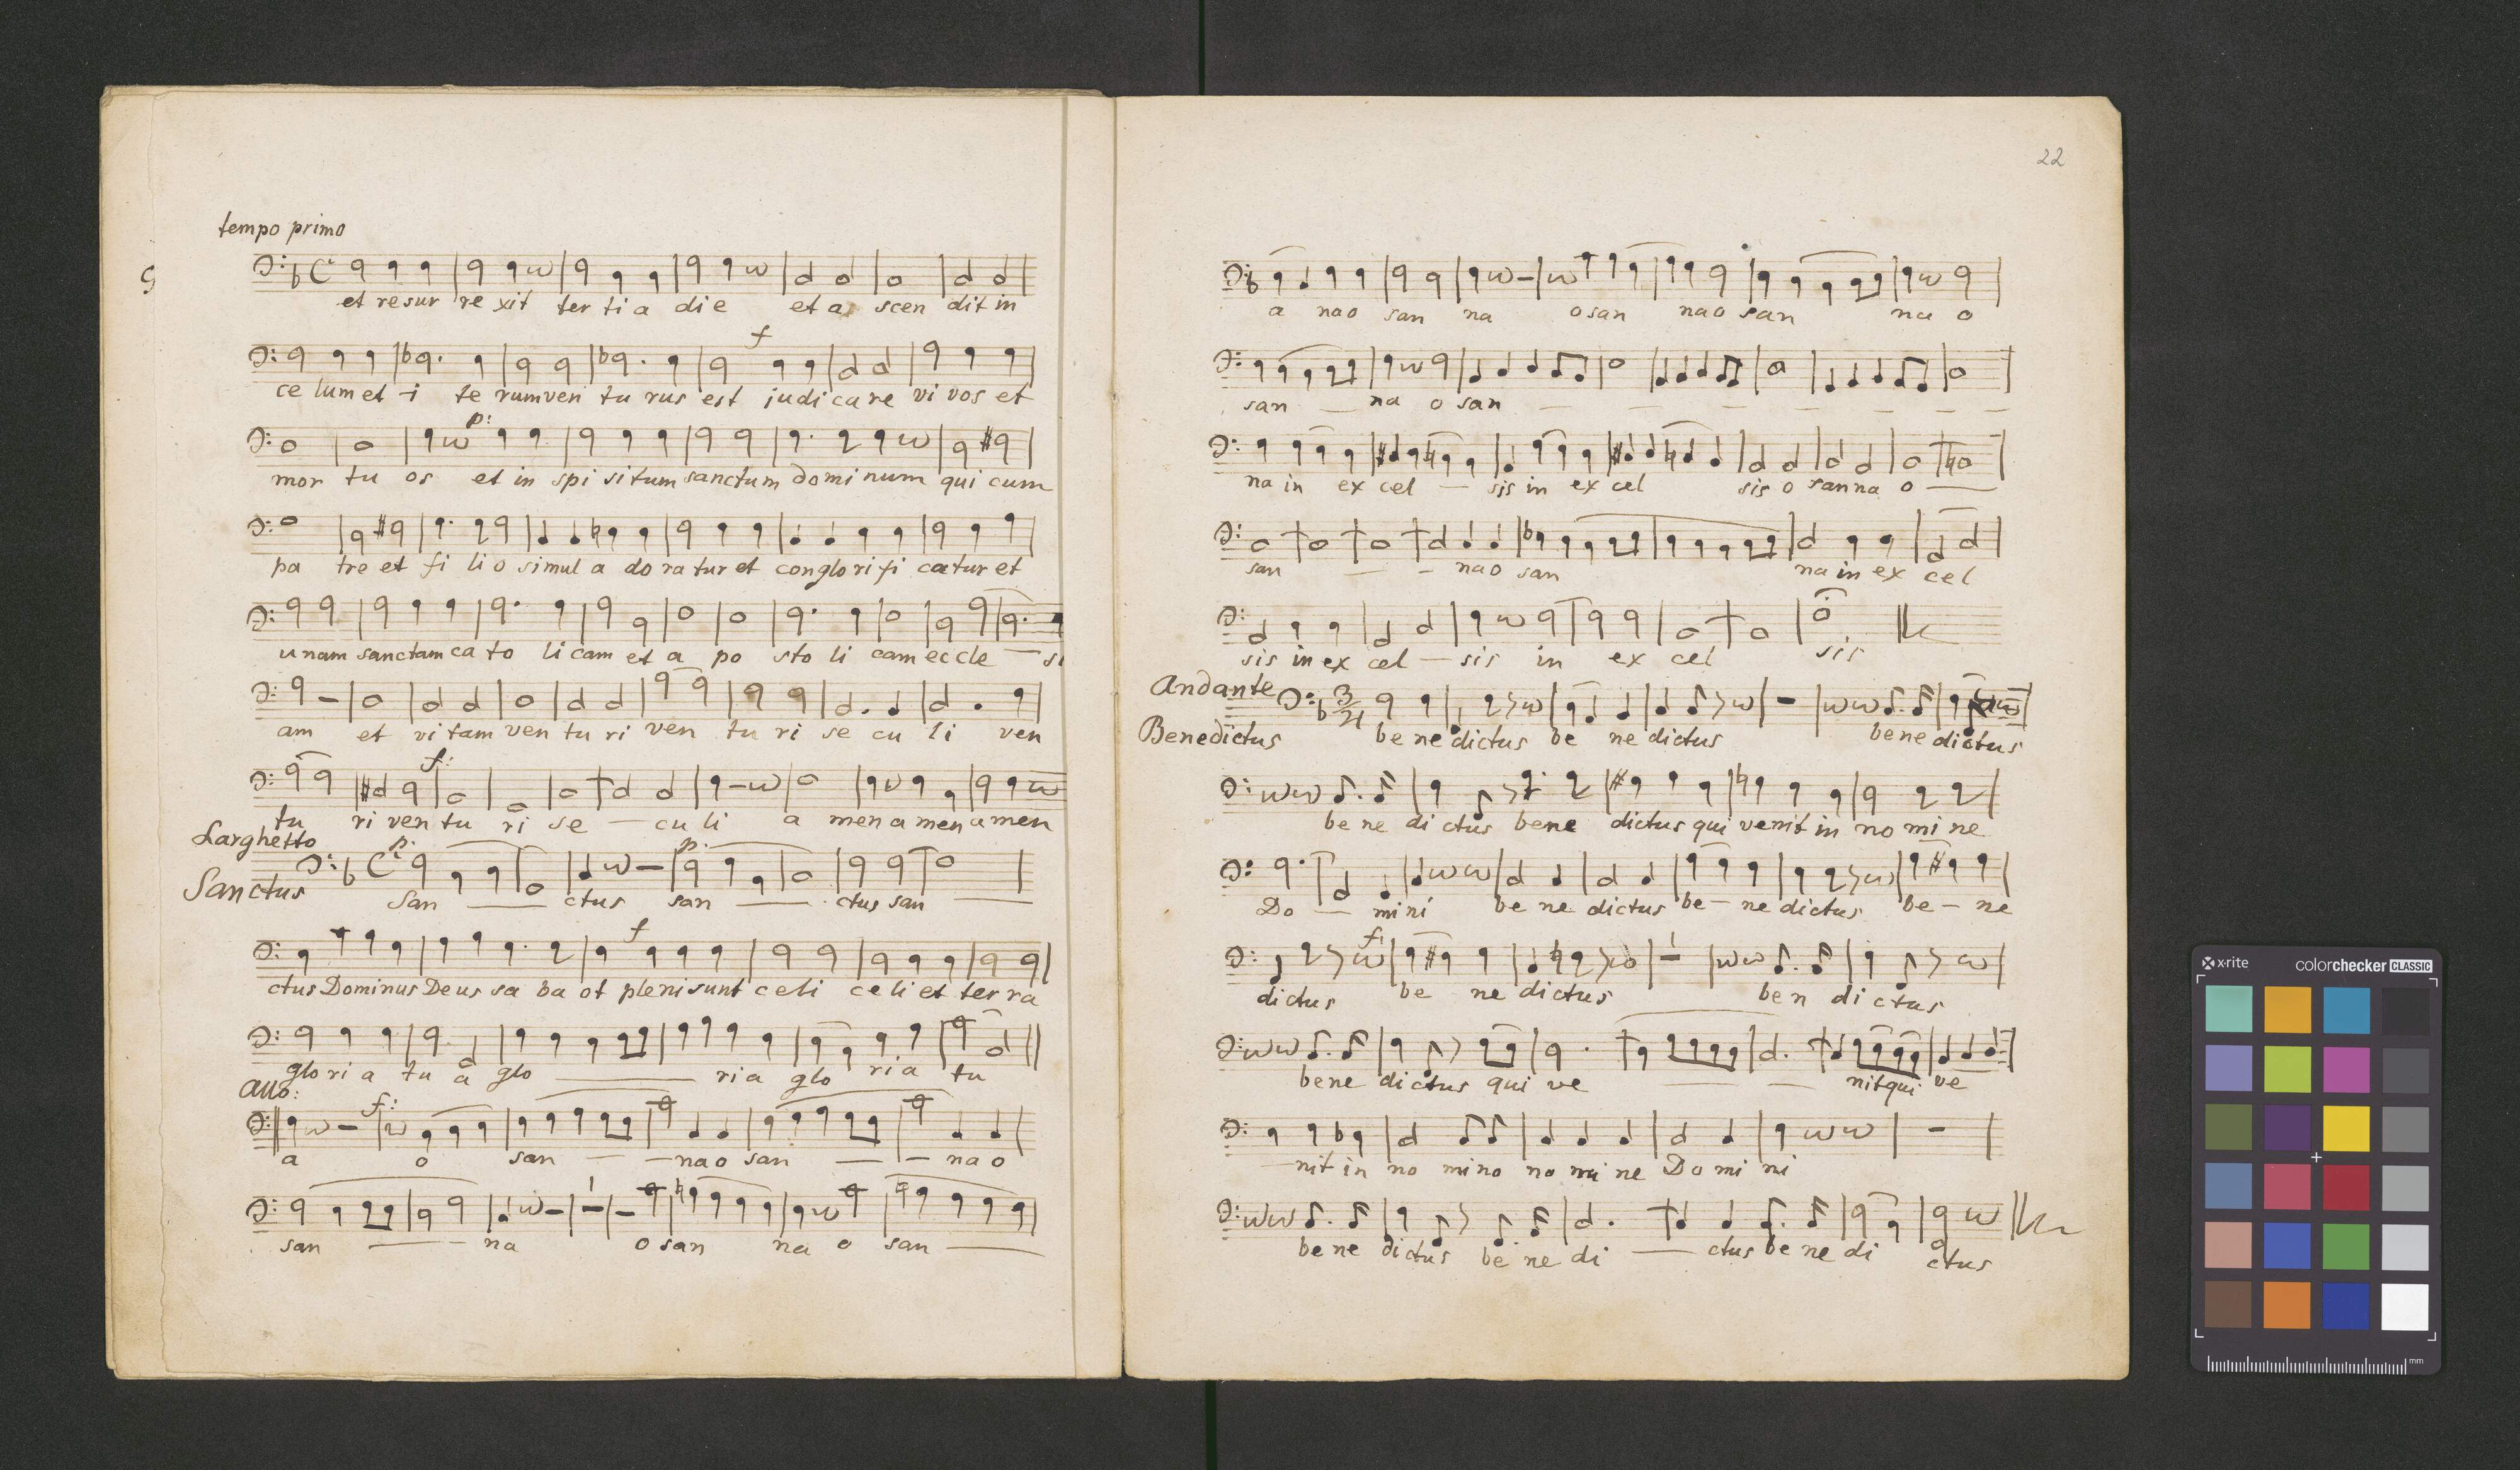 tempo primo
et resur re xit ter ti a di e et a scen dit in
f
ce lum et i te rum ven tu rus est judi ca re vi vos et
p:
mor tu os et in spi si tum sanctum do mi num qui cum
pa tre et fi li o simul a do ra tur et conglo ri fi catur et
unam sanctam ca to li cam et a po sto li cam eccle — si
am et vi tam ven tu ri ven tu ri se cu li ven
f:
tu ri ven tu ri se — cu li a men a men amen
Larghetto
p. p.
Sanctus
San — ctus san — ctus san —
f
ctus Dominus Deus sa ba ot pleni sunt celi ce li et ter ra
glo ri a tu a glo — ria glo ria tu
Allo:
f:
a o san — — na o san — — na o
san — — na o san na o san —
22
a na o san na o san na o san na o
san — na o san — — — — — — —
na in ex cel — sis in ex cel sis o san na o —
san — — na o san na in ex cel
sis in ex cel — sis in ex cel sis
Andante
3/4
Benedictus
be ne dictus be ne dictus bene dictus
be ne di ctus bene dictus qui venit in no mi ne
Do — mini be ne dictus be — ne dictus be — ne
f:
dictus be ne dictus ben di ctus
bene dictus qui ve — — nit qui ve
— nit in no mino no mi ne Do mi ni
be ne dictus be ne di — ctus be ne di ctus
x-rite
colorchecker CLASSIC
mm